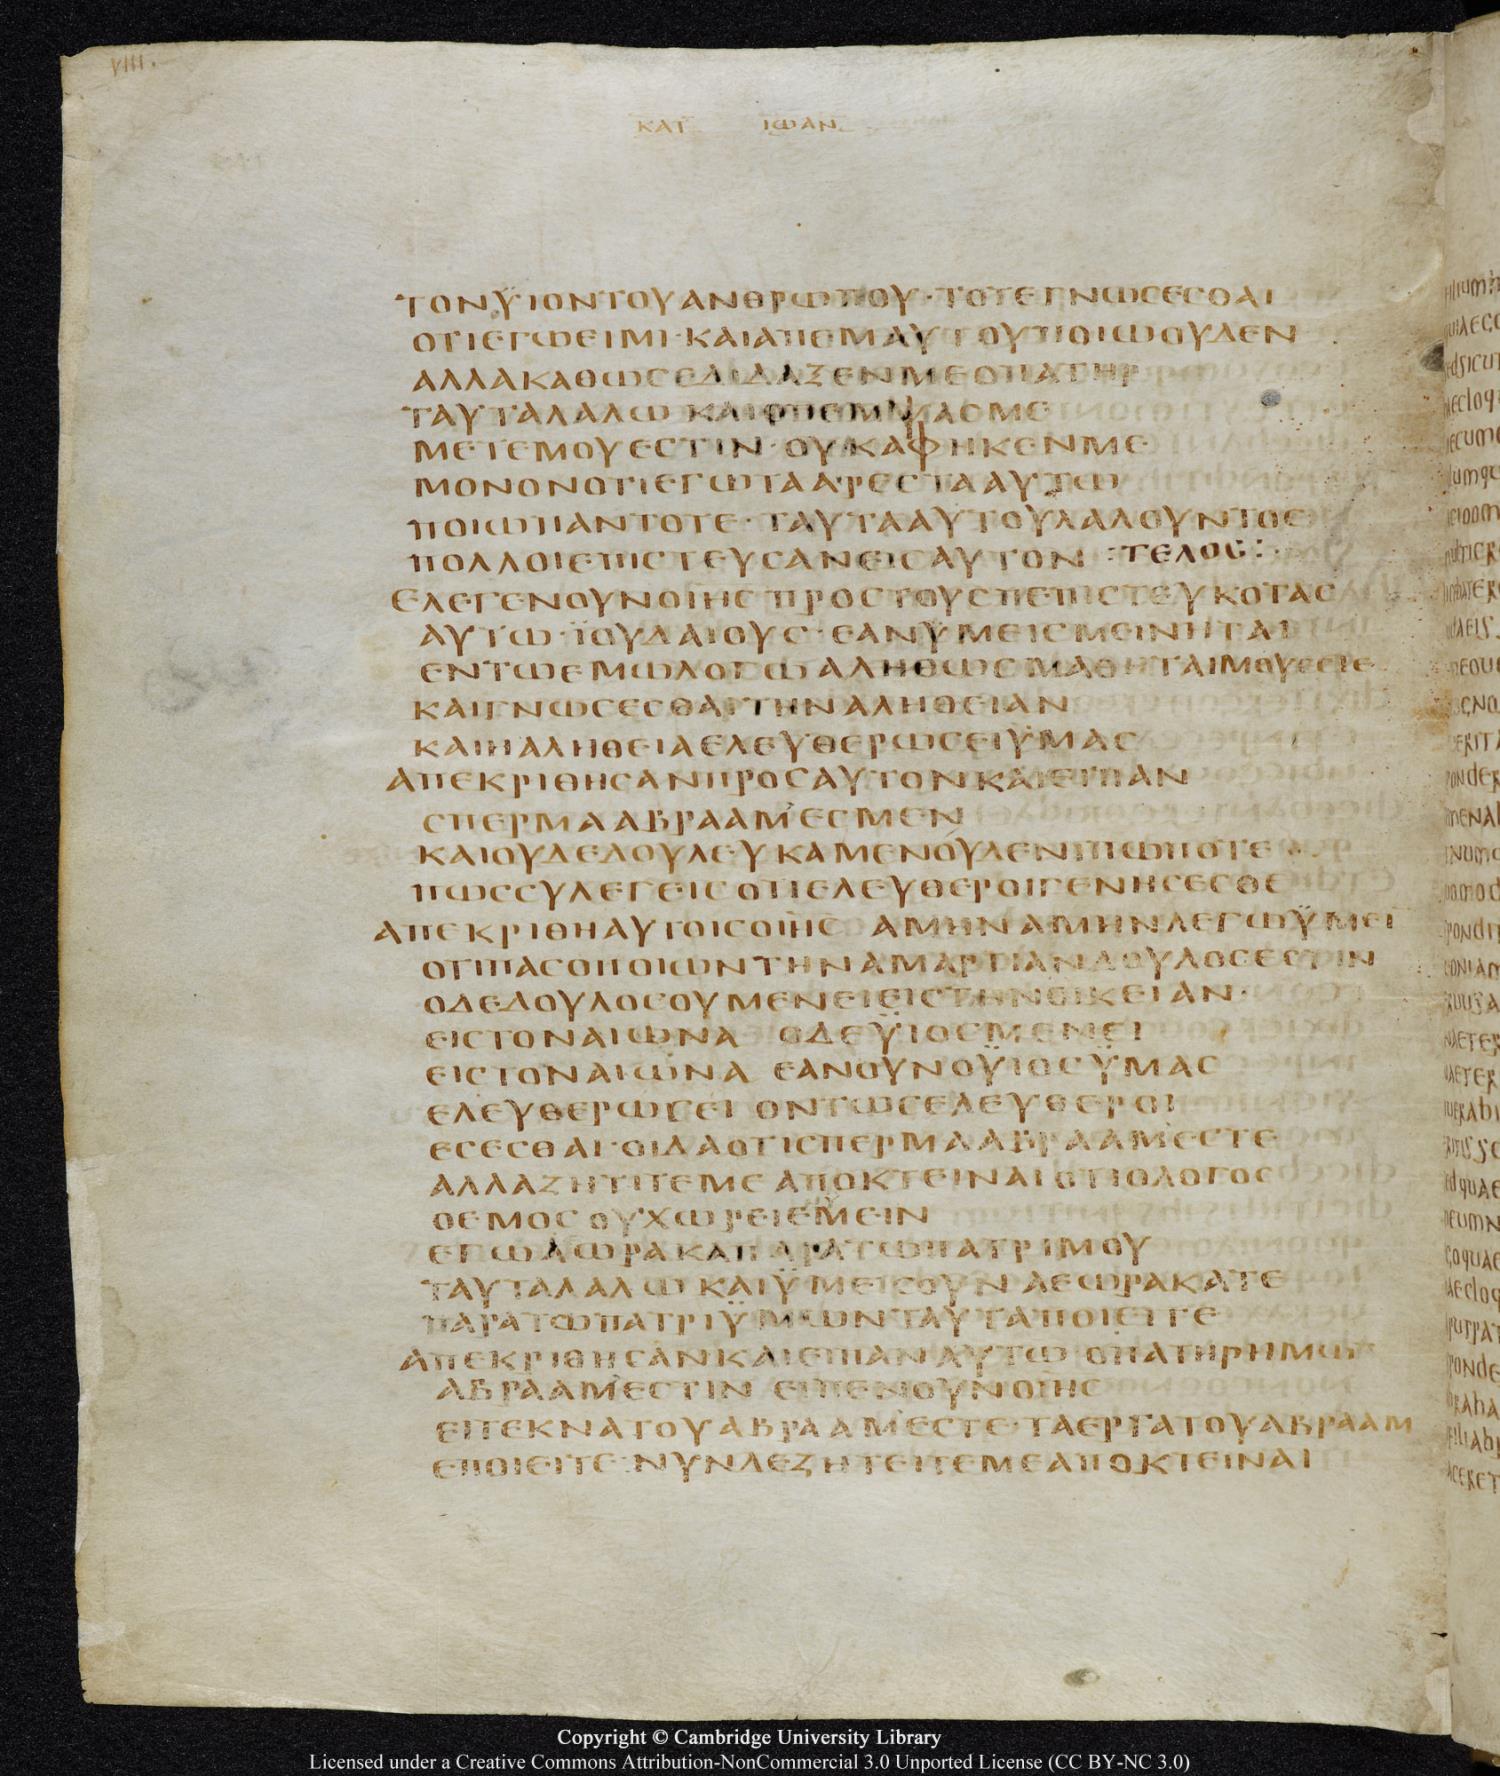 VIII.
ΚΑΤ ΙΩΑΝ
ΤΟΝΫΙΟΝΤΟΥΑΝΘΡΩΠΟΥ·ΤΟΤΕΓΝΩΣΕΣΘΑΙ
ΟΤΙΕΓΩΕΙΜΙ·ΚΑΙΑΠΕΜΑΥΤΟΥΠΟΙΩΟΥΔΕΝ
ΑΛΛΑΚΑΘΩΣΕΔΙΔΑΞΕΝΜΕΟΠΑΤΗΡ
ΤΑΥΤΑΛΑΛΩ ΚΑΙ
ΜΕΤΕΜΟΥΕΣΤΙΝ·ΟΥΚΑΦΗΚΕΝΜΕ
ΜΟΝΟΝΟΤΙΕΓΩΤΑΑΡΕΣΤΑΑΥΤΩ
ΠΟΙΩΠΑΝΤΟΤΕ·ΤΑΥΤΑΑΥΤΟΥΛΑΛΟΥΝΤΟΣ
ΠΟΛΛΟΙΕΠΙΣΤΕΥΣΑΝΕΙΣΑΥΤΟΝ :ΤΕΛΟΣ:
ΕΛΕΓΕΝΟΥΝΟΙΗΣΠΡΟΣΤΟΥΣΠΕΠΙΣΤΕΥΚΟΤΑΣ
ΑΥΤΩ·ΪΟΥΔΑΙΟΥΣ·ΕΑΝΫΜΕΙΣΜΕΙΝΗΤΑΙ
ΕΝΤΩΕΜΩΛΟΓΩ ΑΛΗΘΩΣΜΑΘΗΤΑΙΜΟΥΕΣΤΕ
ΚΑΙΓΝΩΣΕΣΘΑΙΤΗΝΑΛΗΘΕΙΑΝ
ΚΑΙΗΑΛΗΘΕΙΑΕΛΕΥΘΕΡΩΣΕΙΫΜΑΣ
ΑΠΕΚΡΙΘΗΣΑΝΠΡΟΣΑΥΤΟΝΚΑΙΕΙΠΑΝ
ΣΠΕΡΜΑΑΒΡΑΑΜ᾿ΕΣΜΕΝ
ΚΑΙΟΥΔΕΔΟΥΛΕΥΚΑΜΕΝΟΥΔΕΝΙΠΩΠΟΤΕ
ΠΩΣΣΥΛΕΓΕΙΣ ΟΤΙΕΛΕΥΘΕΡΟΙΓΕΝΗΣΕΣΘΕ
ΑΠΕΚΡΙΘΗΑΥΤΟΙΣΟΙΗΣ ΑΜΗΝΑΜΗΝΛΕΓΩΫΜΕΙ
ΟΤΙΠΑΣΟΠΟΙΩΝΤΗΝΑΜΑΡΤΙΑΝΔΟΥΛΟΣΕΣΤΙΝ
ΟΔΕΔΟΥΛΟΣΟΥΜΕΝΕΙΕΙΣΤΗΝΟΙΚΕΙΑΝ·
ΕΙΣΤΟΝΑΙΩΝΑ ΟΔΕΫΙΟΣΜΕΝΕΙ
ΕΙΣΤΟΝΑΙΩΝΑ ΕΑΝΟΥΝΟΫΙΟΣΫΜΑΣ
ΕΛΕΥΘΕΡΩΣΕΙ ΟΝΤΩΣΕΛΕΥΘΕΡΟΙ
ΕΣΕΣΘΑΙ·ΟΙΔΑΟΤΙΣΠΕΡΜΑΑΒΡΑΑΜ᾿ΕΣΤΕ
ΑΛΛΑΖΗΤΙΤΕΜΕ ΑΠΟΚΤΕΙΝΑΙΟΤΙΟΛΟΓΟΣ
ΟΕΜΟΣ ΟΥΧΩΡΕΙΕΜΕΙΝ
ΕΓΩΑΩΡΑΚΑΠΑΡΑΤΩΠΑΤΡΙΜΟΥ
ΤΑΥΤΑΛΑΛΩ ΚΑΙΫΜΕΙΣΟΥΝ ΑΕΩΡΑΚΑΤΕ
ΠΑΡΑΤΩΠΑΤΡΙΫΜΩΝΤΑΥΤΑΠΟΙΕΙΤΕ
ΑΠΕΚΡΙΘΗΣΑΝΚΑΙΕΙΠΑΝΑΥΤΩ ΟΠΑΤΗΡΗΜΩΝ
ΑΒΡΑΑΜ᾿ΕΣΤΙΝ ΕΙΠΕΝΟΥΝΟΙΗΣ
ΕΙΤΕΚΝΑΤΟΥΑΒΡΑΑΜ᾿ΕΣΤΕ·ΤΑΕΡΓΑΤΟΥΑΒΡΑΑΜ
ΕΠΟΙΕΙΤΕ·ΝΥΝΔΕΖΗΤΕΙΤΕΜΕΑΠΟΚΤΕΙΝΑΙ
Copyright © Cambridge University Library
Licensed under a Creative Commons Attribution-NonCommercial 3.0 Unported License (CC BY-NC 3.0)